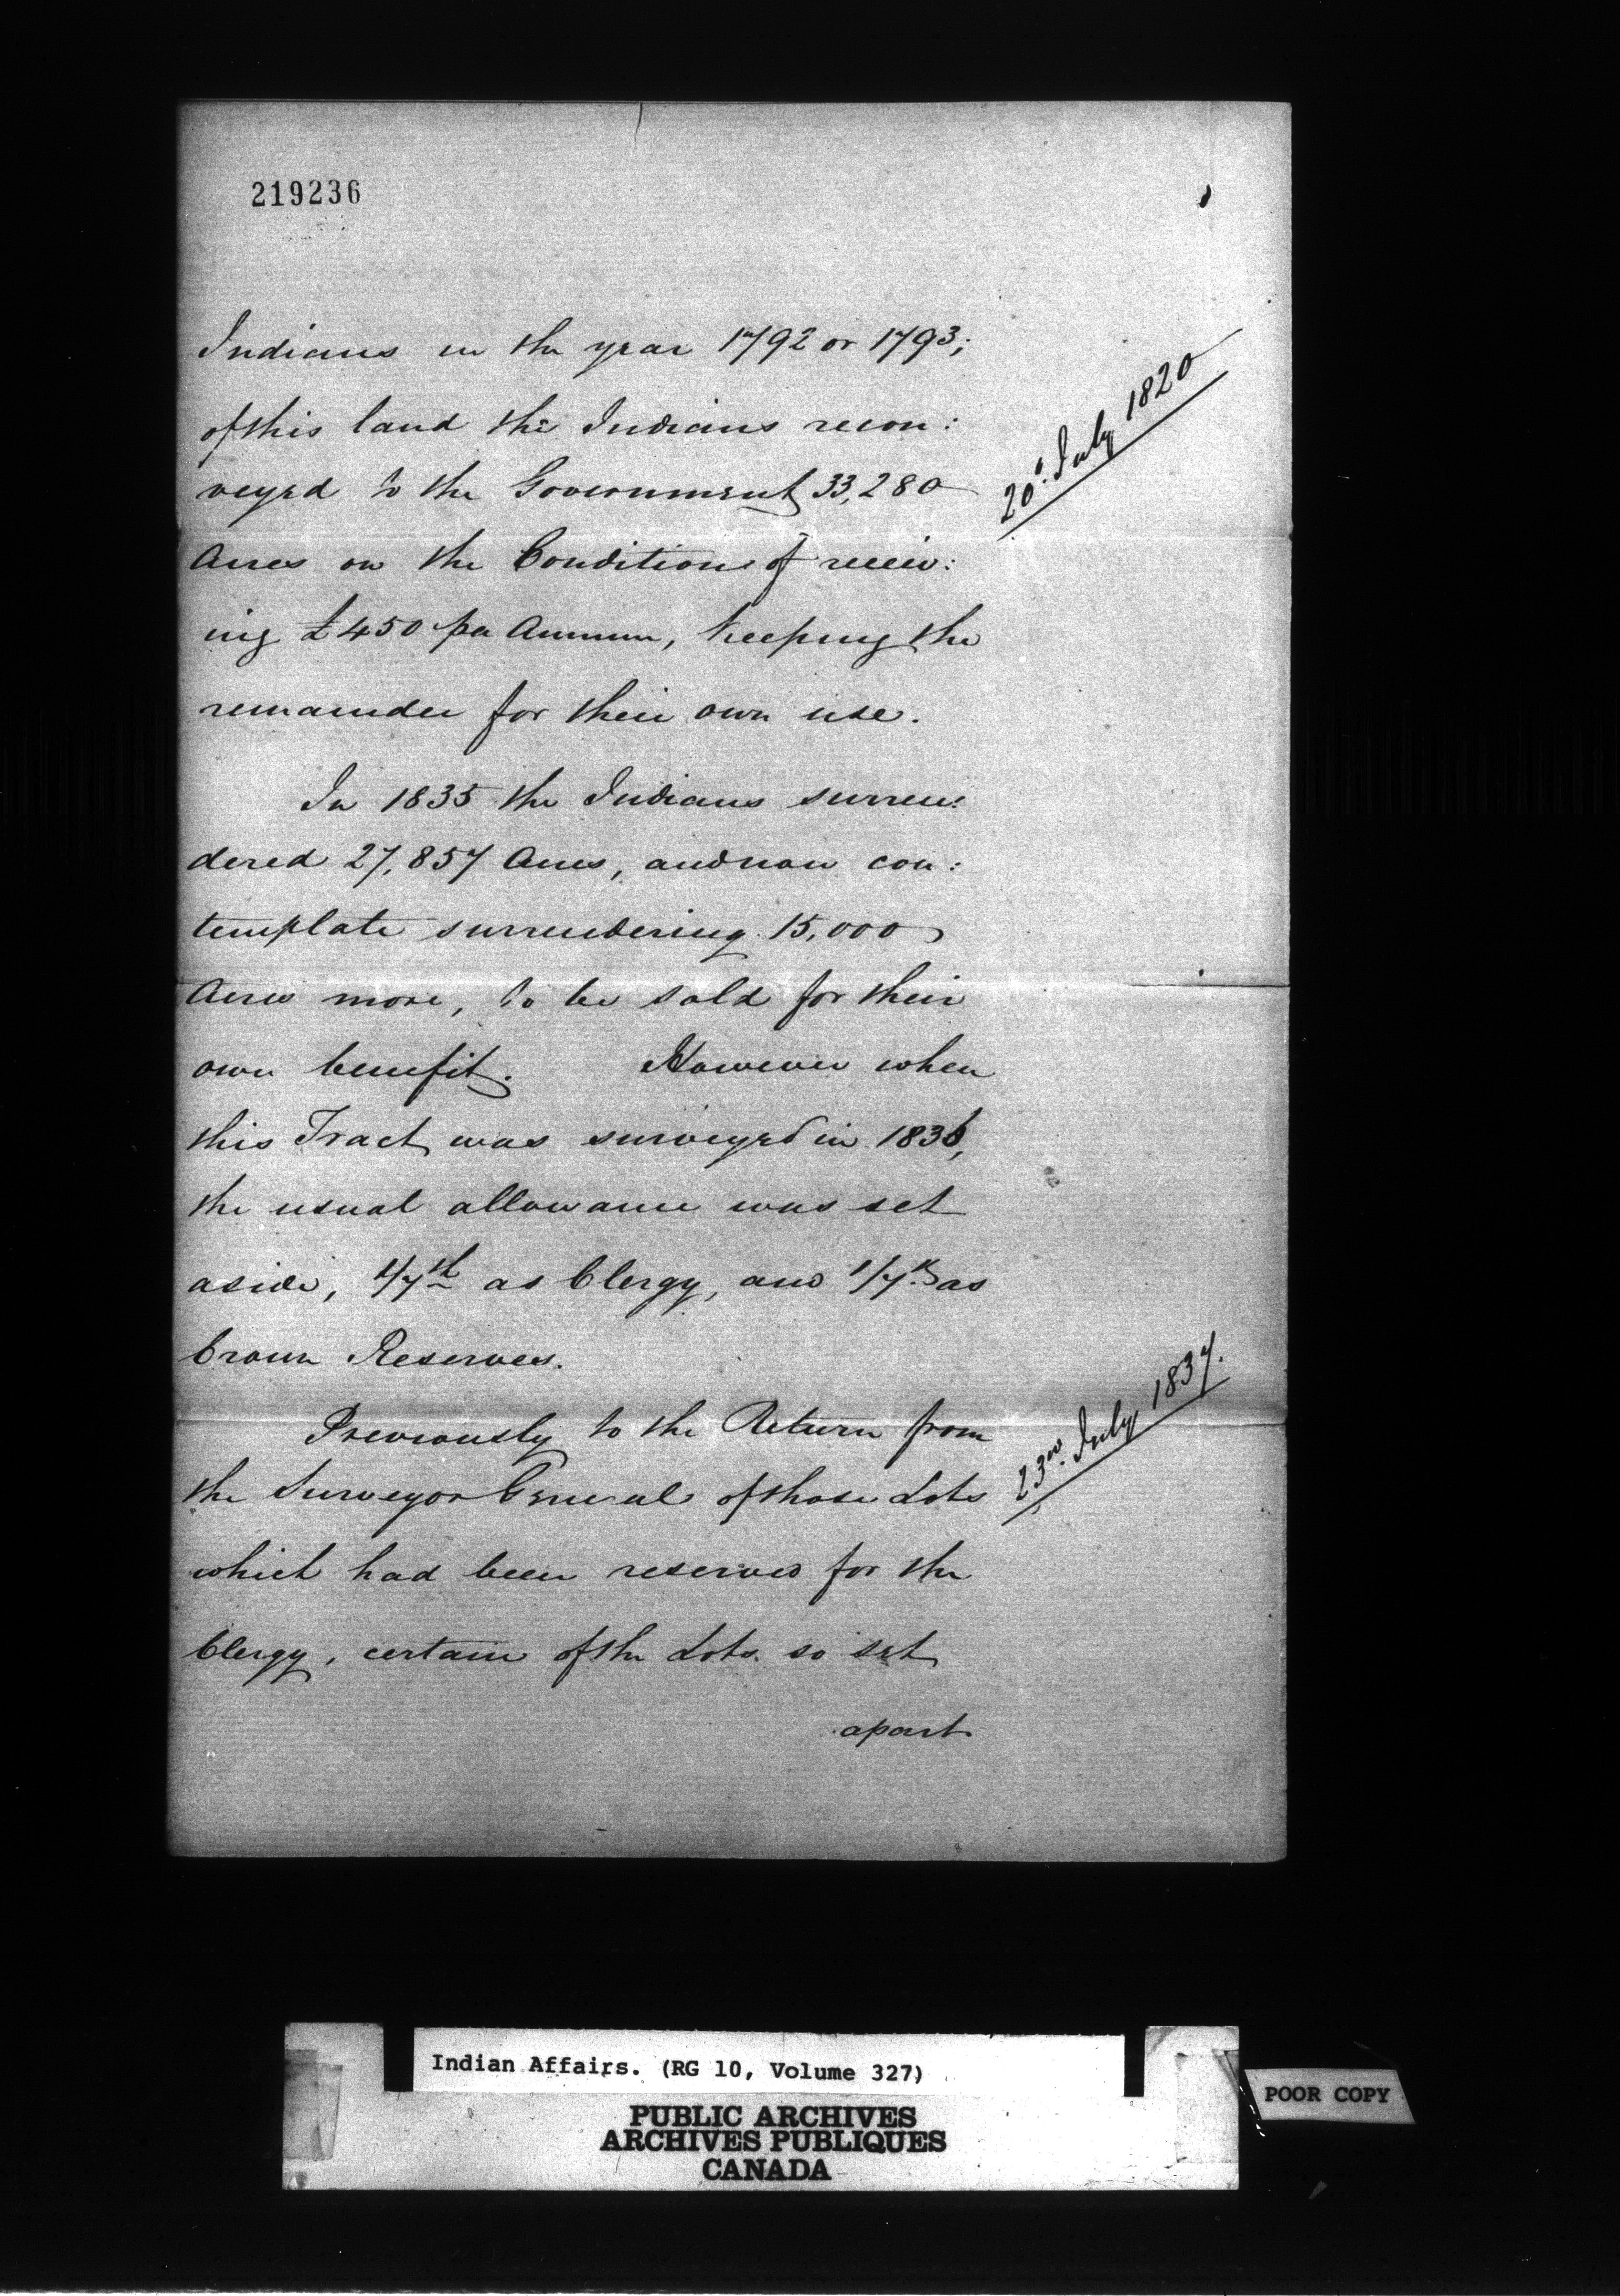 219236
Indians in the year 1792 or 1793;
of this land the Indians recon:
veyed to the Government 33,280
20th July 1820
Acres on the Condition of receiv:
ing £450 per Annum, keeping the
remainder for their own use.
In 1835 the Indians surren:
dered 27,857 Acres, and now con:
template surrendering 15,000
Acres more, to be sold for their
own benefit. However when
this Tract was surveyed in 1836,
the usual allowance was set
aside, 1/7th as Clergy, and 1/7th as
Crown Reserves.
Previously to the Return from
23rd July 1837.
the Surveyor General of those Lots
which had been reserved for the
Clergy, certain of the Lots so set
apart
Indian Affairs. (RG 10, Volume 327)
POOR COPY
PUBLIC ARCHIVES
ARCHIVES PUBLIQUES
CANADA